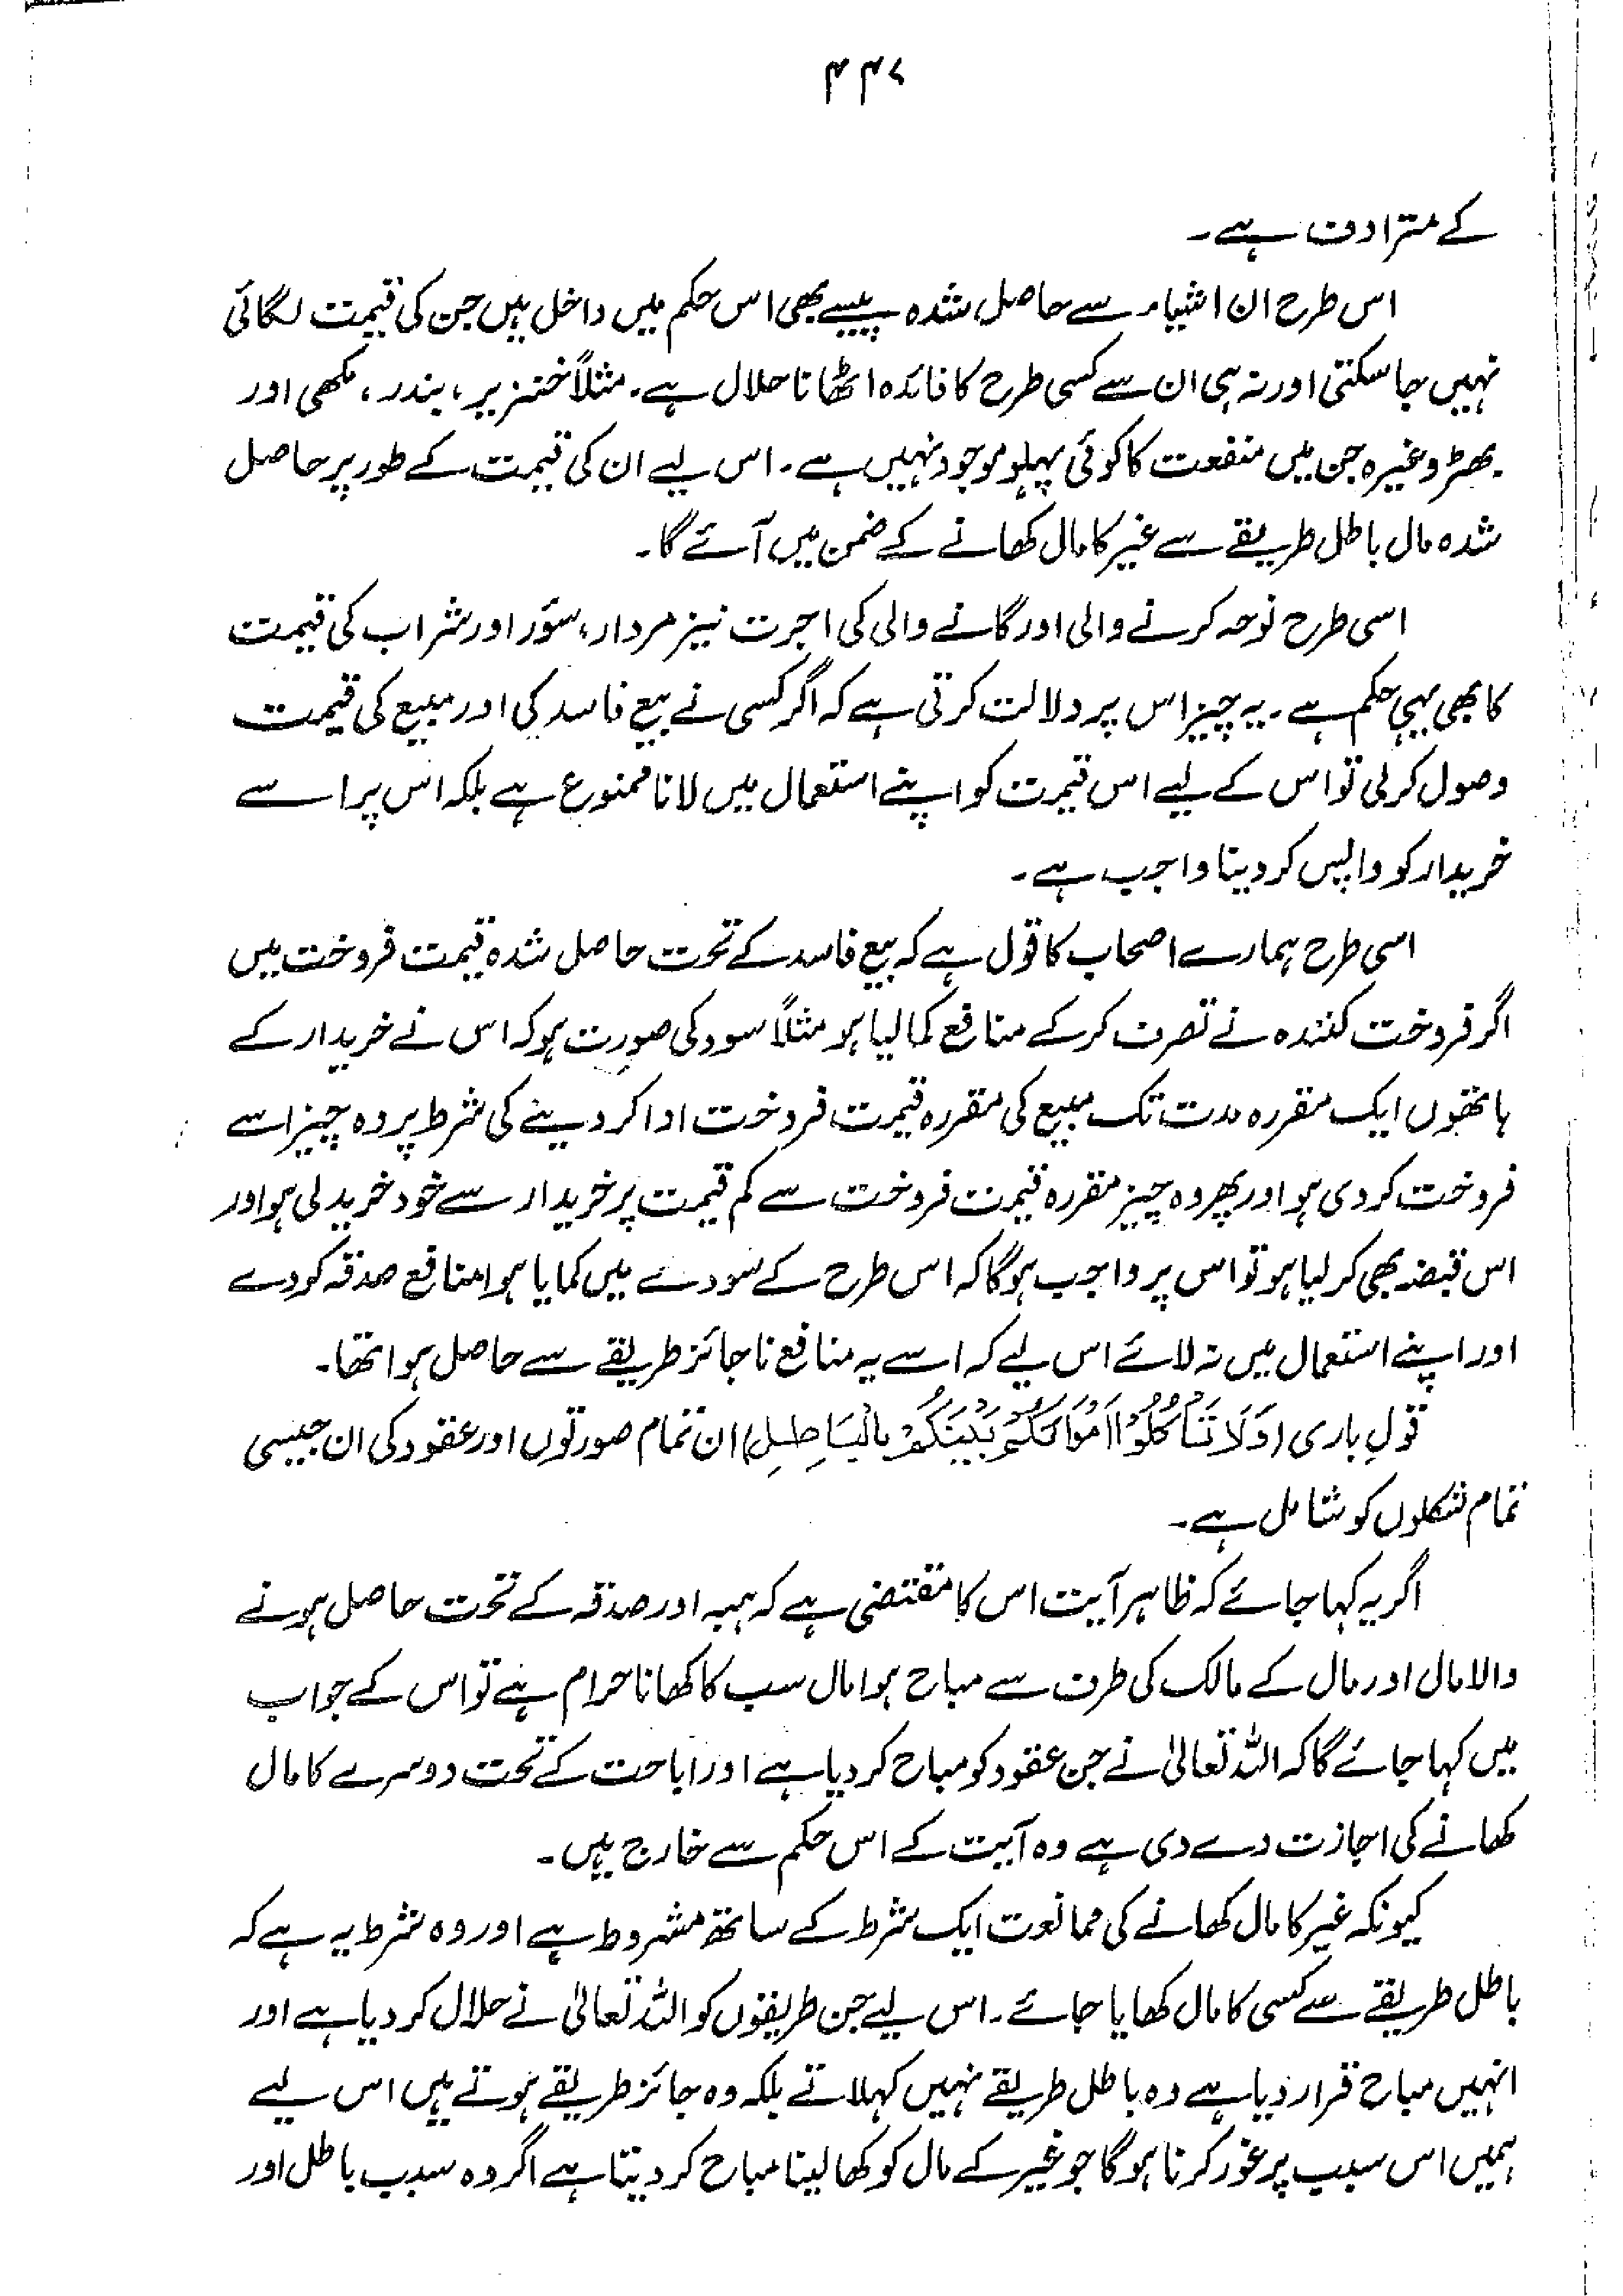 ۴۳۷
کے مترادف ہے۔
اس طرح ان اشیاء سے حاصل شدہ پیسے بھی اس حکم میں داخل ہیں جن کی قیمت لگائی
نہیں جا سکتی اور نہ ہی ان سے کسی طرح کا فائدہ اٹھانا حلال ہے۔ مثلاً خنزیر، بندر، مکھی اور
بھڑ وغیرہ جن میں منفعت کا کوئی پہلو موجود نہیں ہے۔ اس لیے ان کی قیمت کے طور پر حاصل
شدہ مال باطل طریقے سے غیر کا مال کھانے کے ضمن میں آئے گا۔
اسی طرح نوحہ کرنے والی اور گانے والی کی اجرت نیز مردار، سوٴر اور شراب کی قیمت
کا بھی یہی حکم ہے۔ یہ چیز اس پر دلالت کرتی ہے کہ اگر کسی نے بیع فاسد کی اور مبیع کی قیمت
وصول کر لی تو اس کے لیے اس قیمت کو اپنے استعمال میں لانا ممنوع ہے بلکہ اس پر اسے
خریدار کو واپس کر دینا واجب ہے۔
اسی طرح ہمارے اصحاب کا قول ہے کہ بیع فاسد کے تحت حاصل شدہ قیمت فروخت میں
اگر فروخت کنندہ نے تصرف کر کے منافع کما لیا ہو مثلاً سود کی صورت ہو کہ اس نے خریدار کے
ہاتھوں ایک مقررہ مدت تک مبیع کی مقررہ قیمت فروخت ادا کر دینے کی شرط پر وہ چیز اسے
فروخت کر دی ہو اور پھر وہ چیز مقررہ قیمت فروخت سے کم قیمت پر خریدار سے خود خرید لی ہو اور
اس قبضہ بھی کر لیا ہو تو اس پر واجب ہو گا کہ اس طرح کے سودے میں کمایا ہوا منافع صدقہ کر دے
اور اپنے استعمال میں نہ لائے اس لیے کہ اسے یہ منافع ناجائز طریقے سے حاصل ہوا تھا۔
قولِ باری (وَلَا تَأْكُلُوْا اَمْوَالَكُمْ بَيْنَكُمْ بِالْبَاطِلِ) ان تمام صورتوں اور عقود کی ان جیسی
تمام شکلوں کو شامل ہے۔
اگر یہ کہا جائے کہ ظاہر آیت اس کا مقتضی ہے کہ ہبہ اور صدقہ کے تحت حاصل ہونے
والا مال اور مال کے مالک کی طرف سے مباح ہوا مال سب کا کھانا حرام ہے تو اس کے جواب
میں کہا جائے گا کہ اللہ تعالیٰ نے جن عقود کو مباح کر دیا ہے اور اباحت کے تحت دوسرے کا مال
کھانے کی اجازت دے دی ہے وہ آیت کے اس حکم سے خارج ہیں۔
کیونکہ غیر کا مال کھانے کی ممانعت ایک شرط کے ساتھ مشروط ہے اور وہ شرط یہ ہے کہ
باطل طریقے سے کسی کا مال کھایا جائے۔ اس لیے جن طریقوں کو اللہ تعالیٰ نے حلال کر دیا ہے اور
انہیں مباح قرار دیا ہے وہ باطل طریقے نہیں کہلاتے بلکہ وہ جائز طریقے ہوتے ہیں اس لیے
ہمیں اس سبب پر غور کرنا ہو گا جو غیر کے مال کو کھا لینا مباح کر دیتا ہے اگر وہ سبب باطل اور